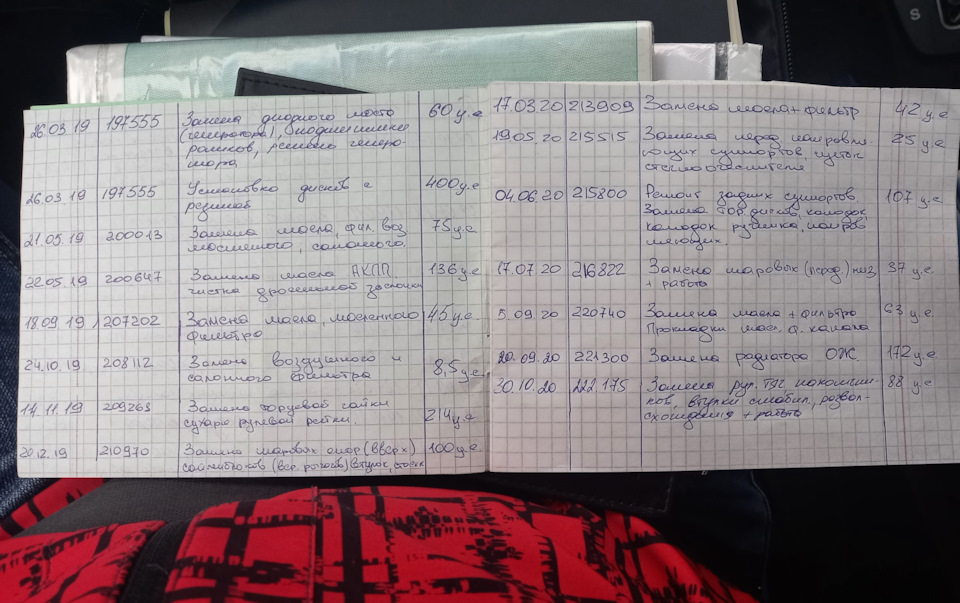 26.03.19 197555 Замена диодного моста 60 у.е
(генератора), подшипники
роликов, ремень генера-
тора
26.03.19 197555 Установка дисков с 400 у.е
резиной
21.05.19 200013 Замена масла, фил. воз. 75 у.е
масляного, салонного.
22.05.19 200647 Замена масла АКПП. 136 у.е
чистка дросельной заслонки
18.09.19 207202 Замена масла, масленного 45 у.е.
фильтра
24.10.19 208112 Замена воздушного и 8,5 у.е
салонного фильтра
14.11.19 209263 Замена торцевой гайки 214 у.е
сухаря рулевой рейки.
20.12.19 210970 Замена шаровых опор (вверх) 100 у.е
сайлнтблоков (вер. рычагов) втулок, стоек
17.03.20 213909 Замена масла + фильтр 42 у.е
19.05.20 215515 Замена перед. направля- 25 у.е
ющих суппортов, щеток
стеклоочестителя
04.06.20 215800 Ремонт задних суппортов. 107 у.е
Замена тор. дисков, колодок,
колодок ручника, направ
ляющих.
17.07.20 216822 Замена шаровых (перед.) низ 37 у.е
+ работа
5.09.20 220740 Замена масла + фильтра 63 у.е
Прокладки масл. ф. канала
20.09.20 221300 Замена радиатора ОЖ. 172 у.е
30.10.20 222175 Замена рул. тяг, наконечни- 88 у.е
ков, втулки стабил., развал-
схождения + работа
S